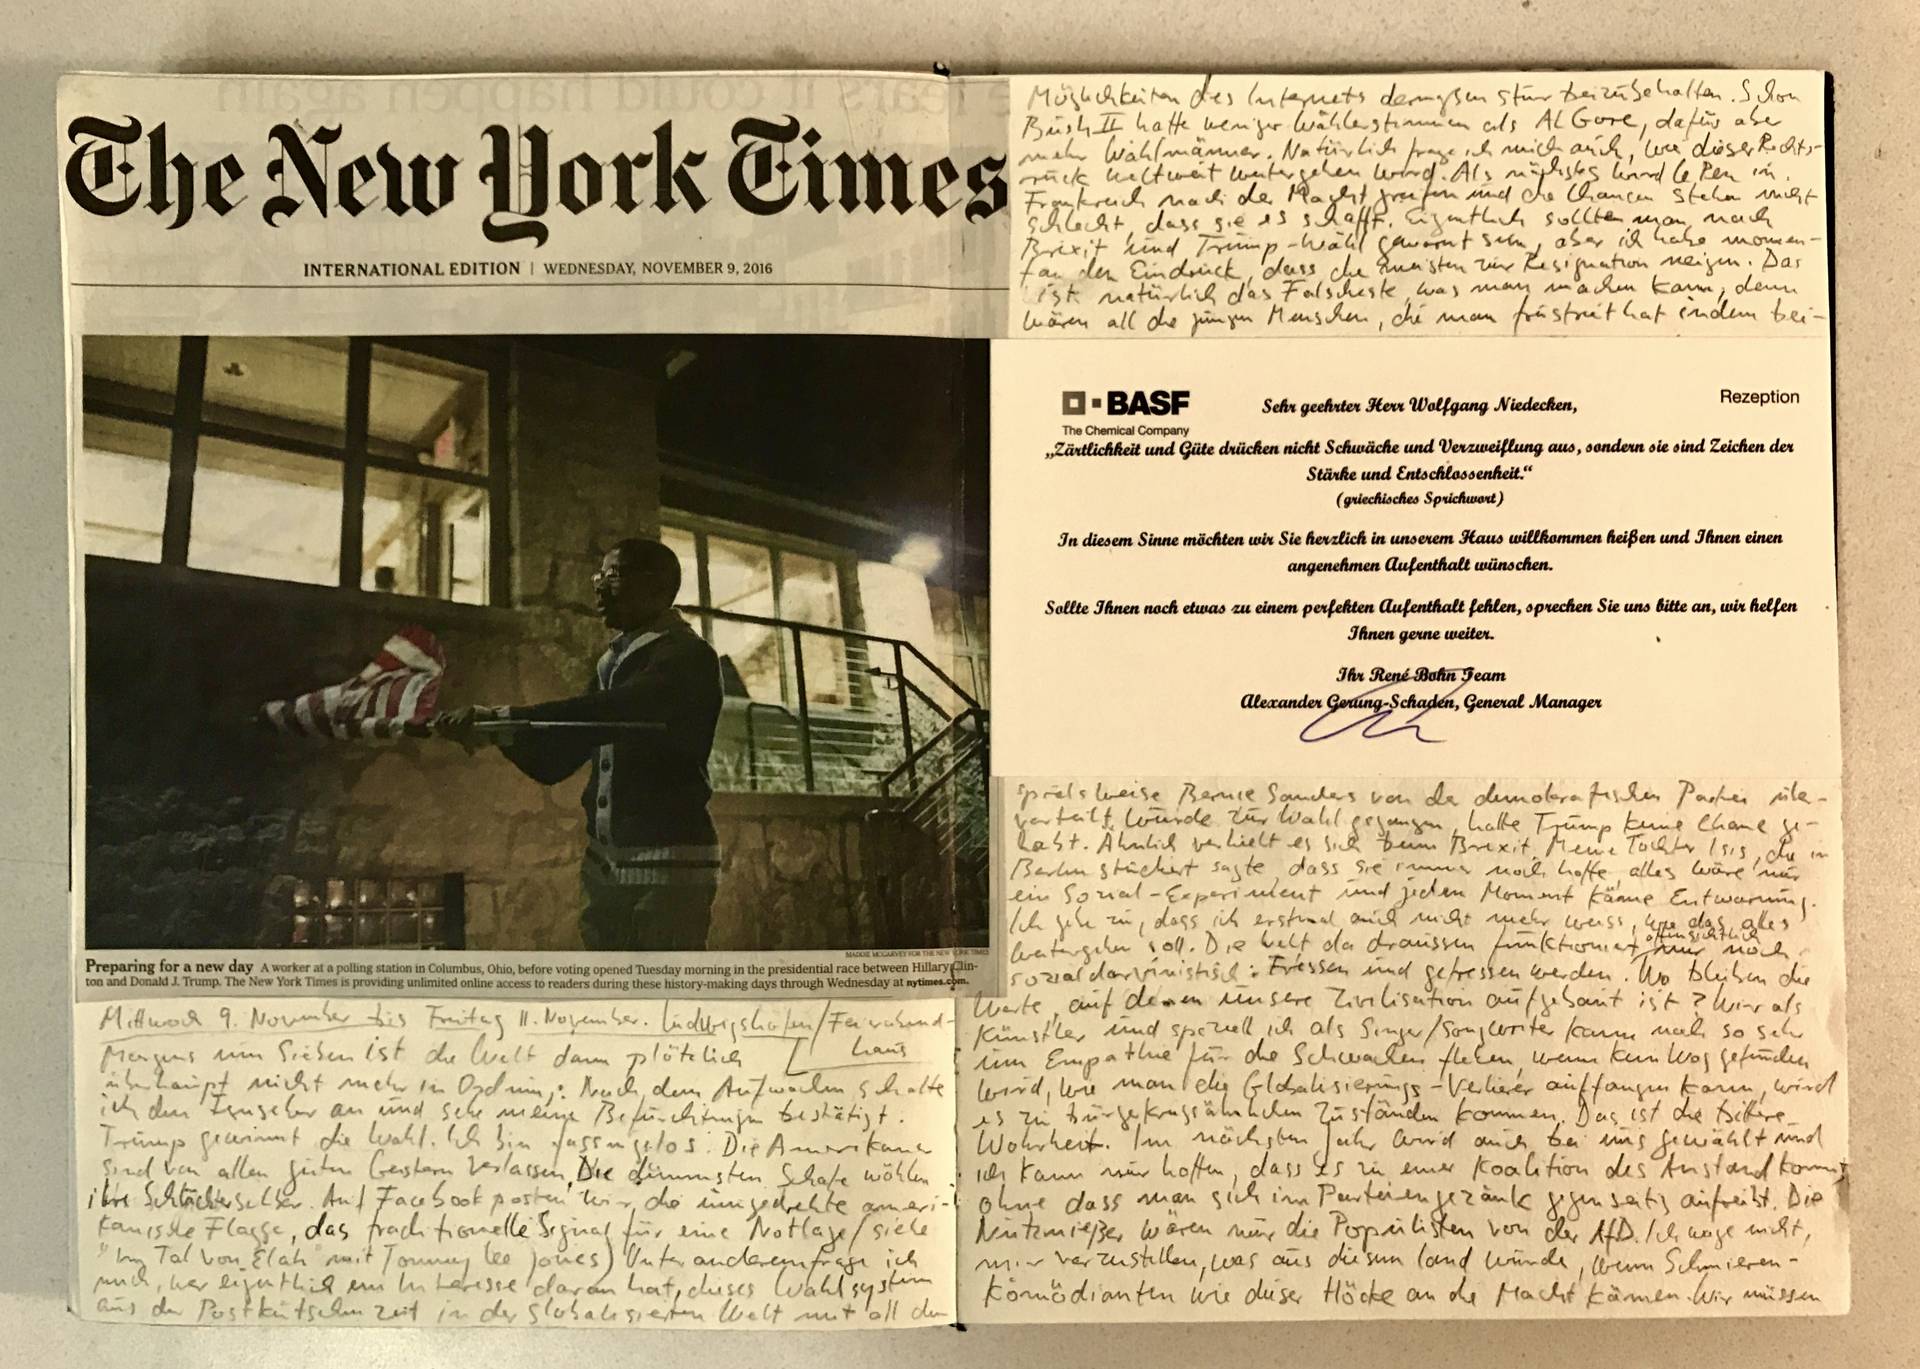 The New York Times
INTERNATIONAL EDITION | WEDNESDAY, NOVEMBER 9, 2016
MADDIE MCGARVEY FOR THE NEW YORK TIMES
Preparing for a new day A worker at a polling station in Columbus, Ohio, before voting opened Tuesday morning in the presidential race between Hillary Clin-
ton and Donald J. Trump. The New York Times is providing unlimited online access to readers during these history-making days through Wednesday at nytimes.com.
Mittwoch 9. November bis Freitag 11. November. Ludwigshafen/Feierabend-
haus
Morgens um Sieben ist die Welt dann plötzlich
überhaupt nicht mehr in Ordnung: Nach dem Aufwachen schalte
ich den Fernseher an und sehe meine Befürchtungen bestätigt.
Trump gewinnt die Wahl. Ich bin fassungslos. Die Amerikaner
sind von allen guten Geistern verlassen, Die dümmsten Schafe wählen
ihre Schlächter selber. Auf Facebook posten wir die umgedrehte ameri-
kanische Flagge, das traditionelle Signal für eine Notlage (siehe
"Im Tal von Elah" mit Tommy Lee Jones) Unter anderem frage ich
mich, wer eigentlich ein Interesse daran hat, dieses Wahlsystem
aus der Postkutschenzeit in der globalisierten Welt mit all den
Möglichkeiten des Internets dermaßen stur beizubehalten. Schon
Bush II hatte weniger Wählerstimmen als Al Gore, dafür aber
mehr Wahlmänner. Natürlich frage ich mich auch, wie dieser Rechts-
ruck weltweit weitergehen wird. Als nächstes wird Le Pen in
Frankreich nach der Macht greifen und die Chancen stehn nicht
schlecht, dass sie es schafft. Eigentlich sollten man nach
Brexit und Trump-Wahl gewarnt sein, aber ich habe momen-
tan den Eindruck, dass die meisten zur Resignation neigen. Das
ist natürlich das Falscheste, was man machen kann, denn
wären all die jungen Menschen, die man frustriert hat indem bei-
BASF
The Chemical Company
Rezeption
Sehr geehrter Herr Wolfgang Niedecken,
„Zärtlichkeit und Güte drücken nicht Schwäche und Verzweiflung aus, sondern sie sind Zeichen der
Stärke und Entschlossenheit.“
(griechisches Sprichwort)
In diesem Sinne möchten wir Sie herzlich in unserem Haus willkommen heißen und Ihnen einen
angenehmen Aufenthalt wünschen.
Sollte Ihnen noch etwas zu einem perfekten Aufenthalt fehlen, sprechen Sie uns bitte an, wir helfen
Ihnen gerne weiter.
Ihr René Bohn Team
Alexander Gerung-Schaden, General Manager
spielsweise Bernie Sanders von der demokratischen Partei über-
vorteilt wurde zur Wahl gegangen, hätte Trump keine Chance ge-
habt. Ähnlich verhielt es sich beim Brexit. Meine Tochter Isis, die in
Berlin studiert sagte, dass sie immer noch hoffe, alles wäre nur
ein Sozial-Experiment und jeden Moment käme Entwarnung.
Ich gebe zu, dass ich erstmal auch nicht mehr weiss, wie das alles
weitergehen soll. Die Welt da draussen funktioniert offensichtlich nur noch
sozialdarwinistisch: Fressen und gefressen werden. Wo bleiben die
Werte, auf denen unsere Zivilisation aufgebaut ist? Wir als
Künstler und speziell ich als Singer/Songwriter kann noch so sehr
um Empathie für die Schwachen flehen, wenn kein Weg gefunden
wird, wie man die Globalisierungs-Verlierer auffangen kann, wird
es zu bürgerkriegsähnlichen Zuständen kommen. Das ist die bittere
Wahrheit. Im nächsten Jahr wird auch bei uns gewählt und
ich kann nur hoffen, dass es zu einer Koalition des Anstand kommt,
ohne dass man sich im Parteiengezänk gegenseitig aufreibt. Die
Nutznießer wären nur die Populisten von der AfD. Ich wage nicht,
mir vorzustellen, was aus diesem Land würde, wenn Schmieren-
Komödianten wie dieser Höcke an die Macht kämen. Wir müssen